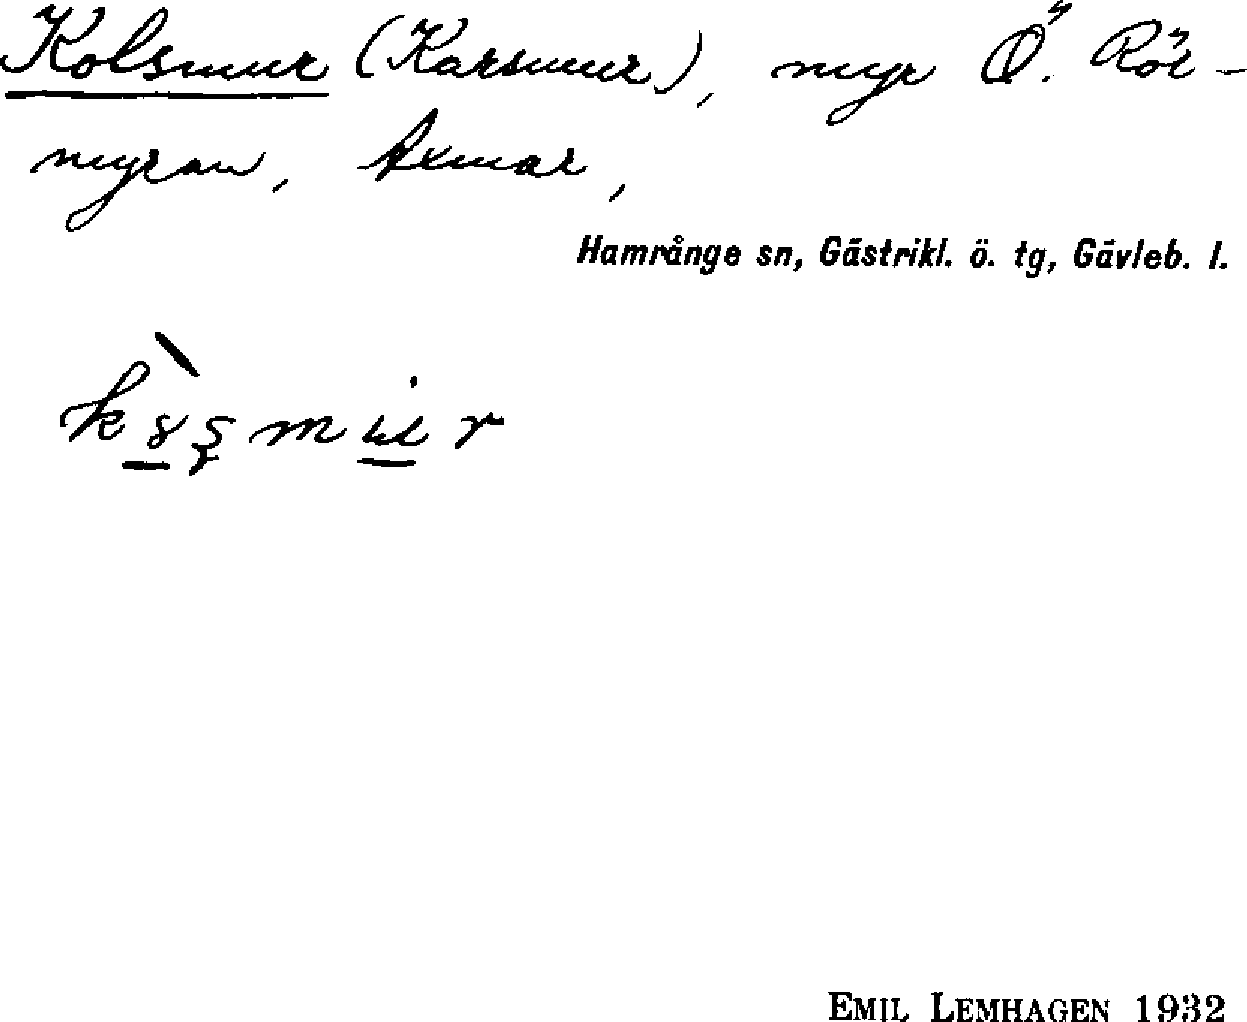 Kolsmur (Karsmur), myr Ö. Rör-
myran, Axmar,
Hamrånge sn, Gästrikl. ö. tg, Gävleb. l.
EMIL LEMHAGEN 1932